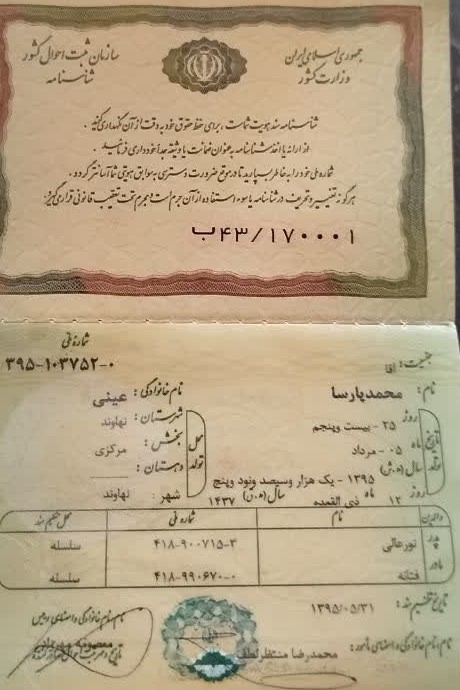 جمهوری اسلامی ایران
وزارت کشور
سازمان ثبت احوال کشور
شناسنامه
شناسنامه سند هویت شماست، برای حفظ حقوق خود به دقت از آن نگهداری کنید.
از ارائه یا اخذ شناسنامه به عنوان ضمانت یا وثیقه جداً خودداری فرمائید.
شماره ملی خود را به خاطر بسپارید تا در موقع ضرورت دسترسی به سوابق هویتی شما آسانتر گردد.
هرگونه تغییر و تحریف در شناسنامه یا سوء استفاده از آن جرم است و مجرم تحت تعقیب قانونی قرار می‌گیرد.
ب۴۳/۱۷۰۰۰۱
شماره ملی
۳۹۵-۱۰۳۷۵۲-۰
جنسیت: آقا
نام: محمدپارسا
نام خانوادگی: عینی
تاریخ تولد
روز ۲۵ - بیست وپنجم
ماه ۰۵ - مرداد
سال(ه.ش) ۱۳۹۵ - یک هزار وسیصد ونود وپنج
روز ۱۲ ماه ذی القعده سال(ه.ق) ۱۴۳۷
محل تولد
شهرستان: نهاوند
بخش: مرکزی
دهستان:
شهر: نهاوند
والدین نام شماره ملی محل تنظیم سند
پدر نورعالی ۴۱۸-۹۰۰۷۱۵-۳ سلسله
مادر فتانه ۴۱۸-۹۹۰۶۷۰-۰ سلسله
تاریخ تنظیم سند: ۱۳۹۵/۰۵/۳۱
نام، نام خانوادگی و امضای مأمور: محمدرضا منتظرلطف
نام، نام خانوادگی و امضای رئیس